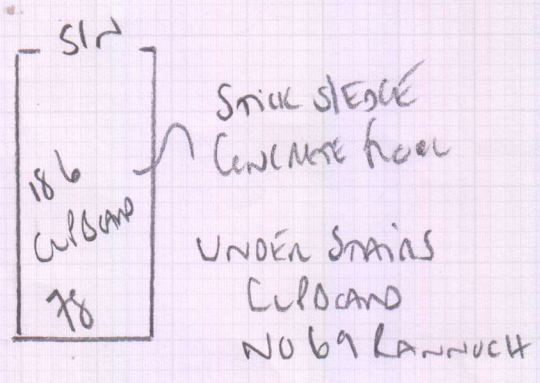 186
CUPBOARD
78
STICK SLEDGE
CONCRETE FLOOR
UNDER STAIRS
CUPBOARD
NO 69 RANNOCH